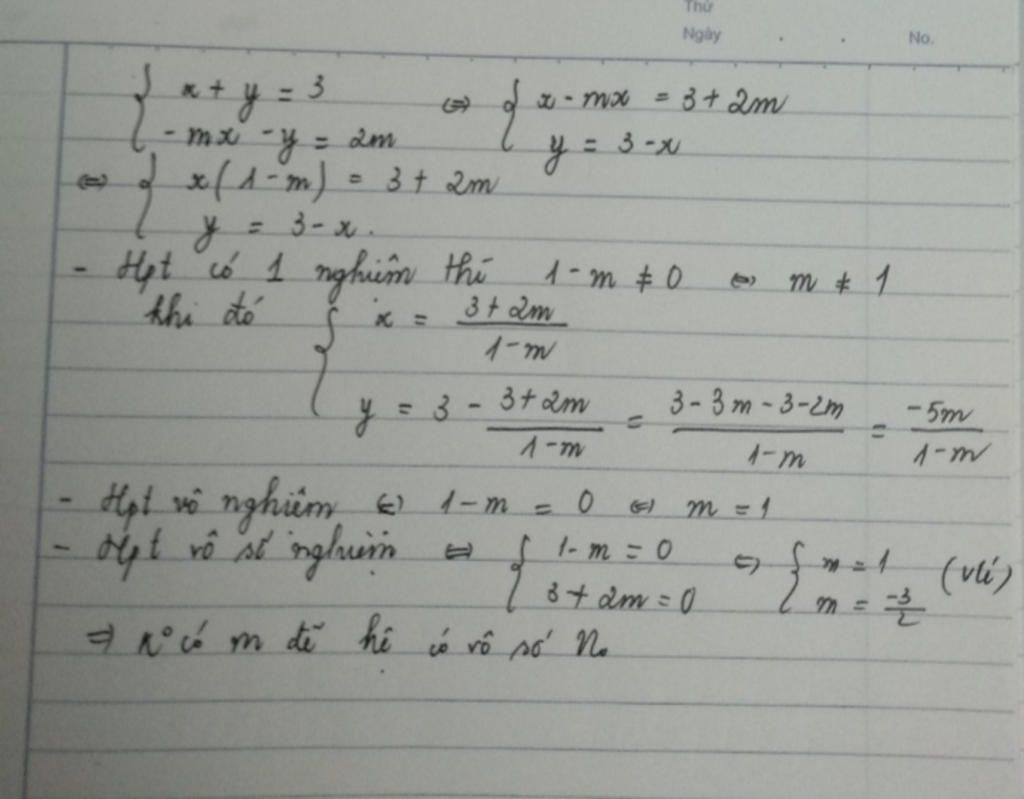 Thứ
Ngày . . No.
{ x + y = 3 ⇔ { x - mx = 3 + 2m
{ - mx - y = 2m { y = 3 - x
⇔ { x(1 - m) = 3 + 2m
{ y = 3 - x.
- Hpt có 1 nghiệm thì 1 - m ≠ 0 ⇔ m ≠ 1
khi đó { x = (3 + 2m)/(1 - m)
{ y = 3 - (3 + 2m)/(1 - m) = (3 - 3m - 3 - 2m)/(1 - m) = (-5m)/(1 - m)
- Hpt vô nghiệm ⇔ 1 - m = 0 ⇔ m = 1
- Hpt vô số nghiệm ⇔ { 1 - m = 0 ⇔ { m = 1 (vlí)
{ 3 + 2m = 0 { m = -3/2
⇒ k° có m để hệ có vô số n₀